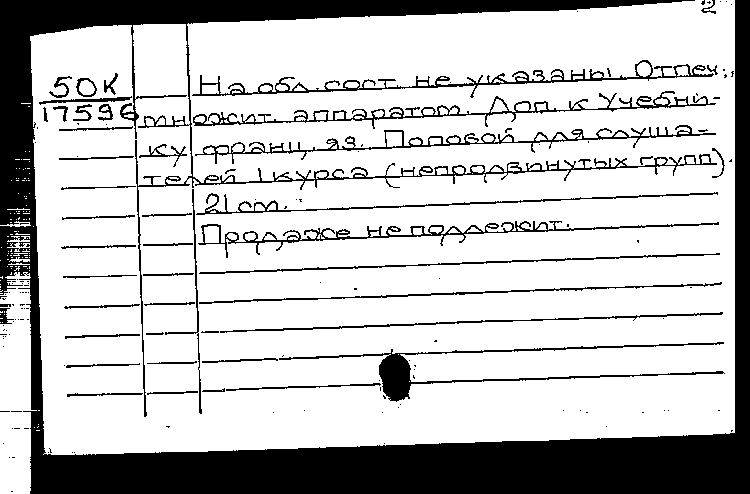 2
50К
17596
На обл. сост. не указаны. Отпеч.
множит. аппаратом. Доп. к Учебни-
ку франц. яз. Поповой для слуша-
телей I курса (непродвинутых групп).
21 cm.
Продаже не подлежит.